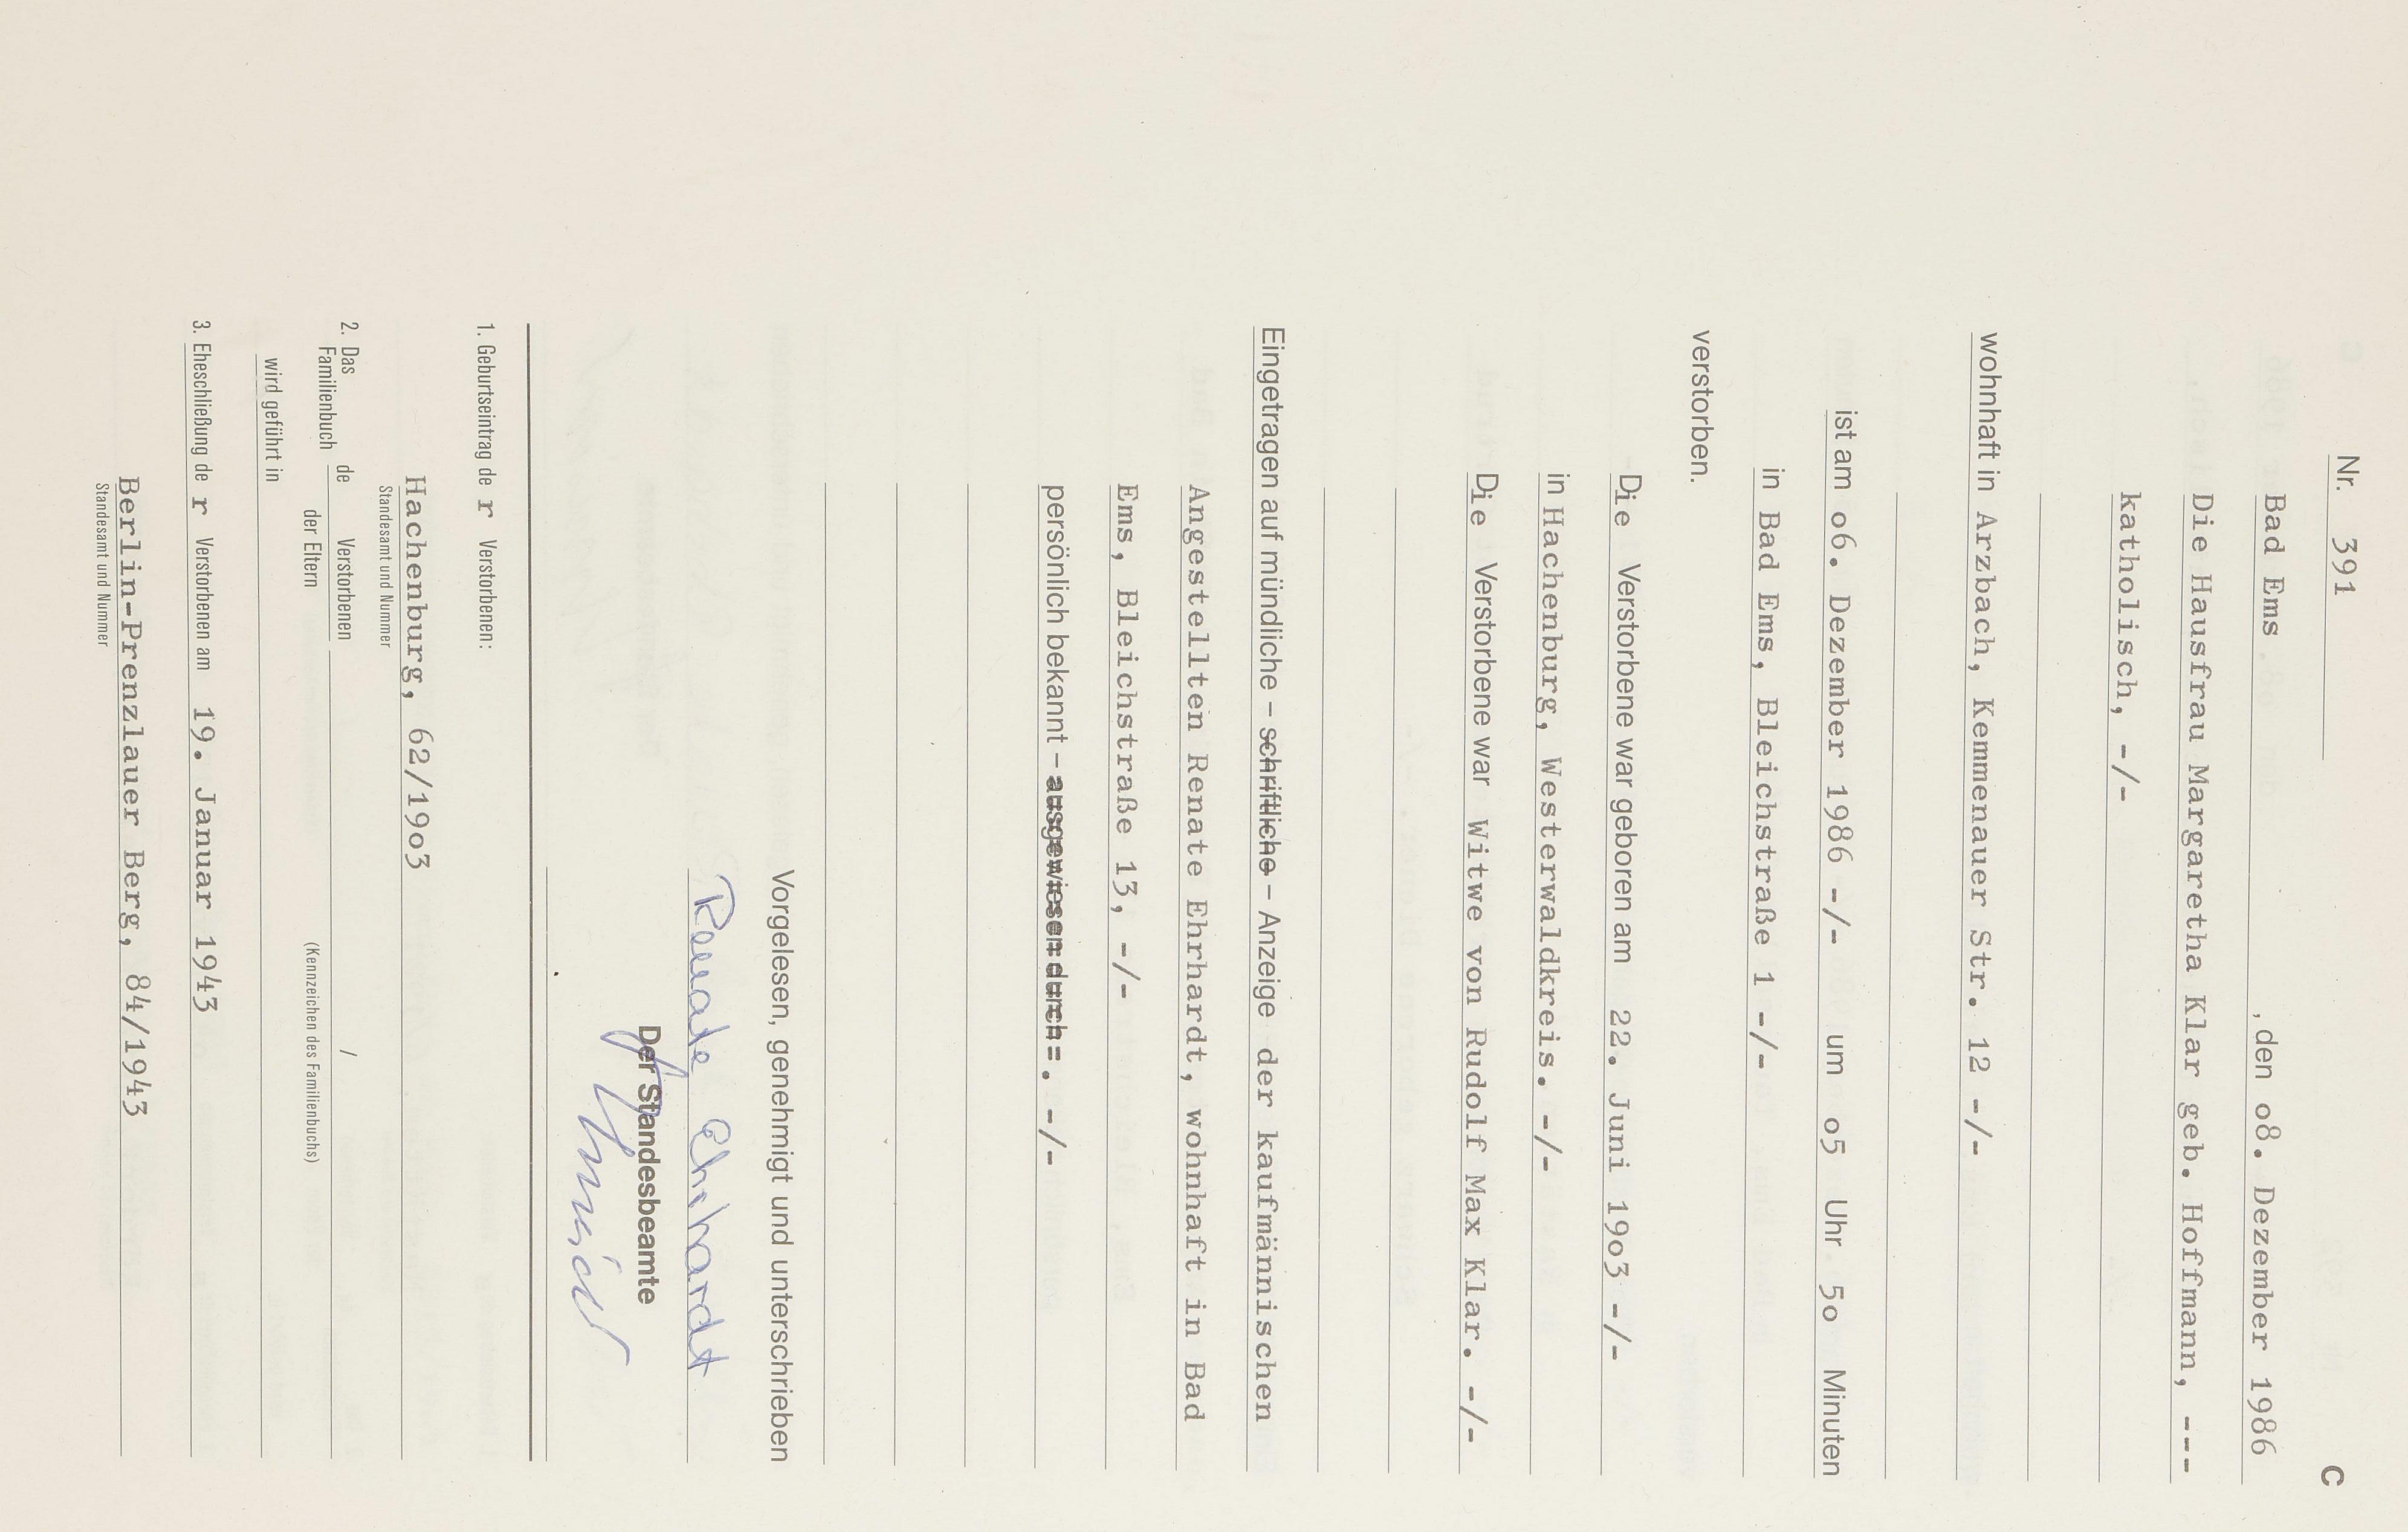 C
Nr. 391
Bad Ems , den o8. Dezember 1986
Die Hausfrau Margaretha Klar geb. Hoffmann, ---
katholisch, -/-
wohnhaft in Arzbach, Kemmenauer Str. 12 -/-
ist am o6. Dezember 1986 -/- um o5 Uhr 5o Minuten
in Bad Ems, Bleichstraße 1 -/-
verstorben.
Die Verstorbene war geboren am 22. Juni 19o3 -/-
in Hachenburg, Westerwaldkreis. -/-
Die Verstorbene war Witwe von Rudolf Max Klar. -/-
Eingetragen auf mündliche – schriftliche – Anzeige der kaufmännischen
Angestellten Renate Ehrhardt, wohnhaft in Bad
Ems, Bleichstraße 13, -/-
persönlich bekannt – ausgewiesen durch=. -/-
Vorgelesen, genehmigt und unterschrieben
Renate Ehrhardt
Der Standesbeamte
1. Geburtseintrag de r Verstorbenen:
Hachenburg, 62/19o3
Standesamt und Nummer
2. Das Familienbuch de Verstorbenen /
der Eltern (Kennzeichen des Familienbuchs)
wird geführt in
3. Eheschließung de r Verstorbenen am 19. Januar 1943
Berlin-Prenzlauer Berg, 84/1943
Standesamt und Nummer